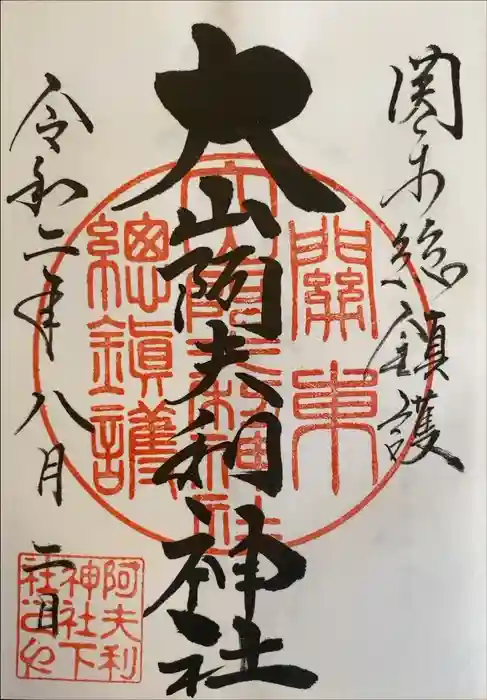 関東総鎮護
大山阿夫利神社
令和二年八月二日
關東
大山阿夫利神社
總鎮護
阿夫利
神社下
社